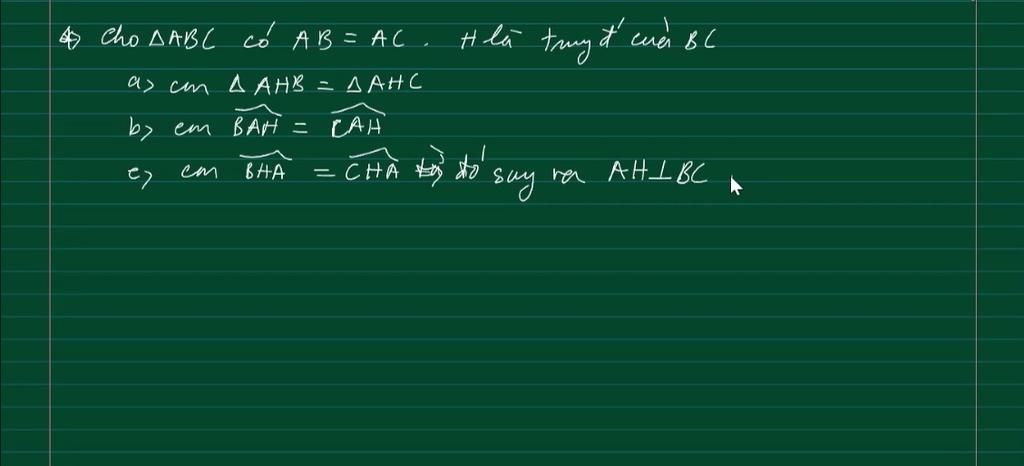 4) Cho △ABC có AB = AC. H là trung đ' của BC
a) cm △AHB = △AHC
b) cm \widehat{BAH} = \widehat{CAH}
c) cm \widehat{BHA} = \widehat{CHA} từ đó suy ra AH⊥BC